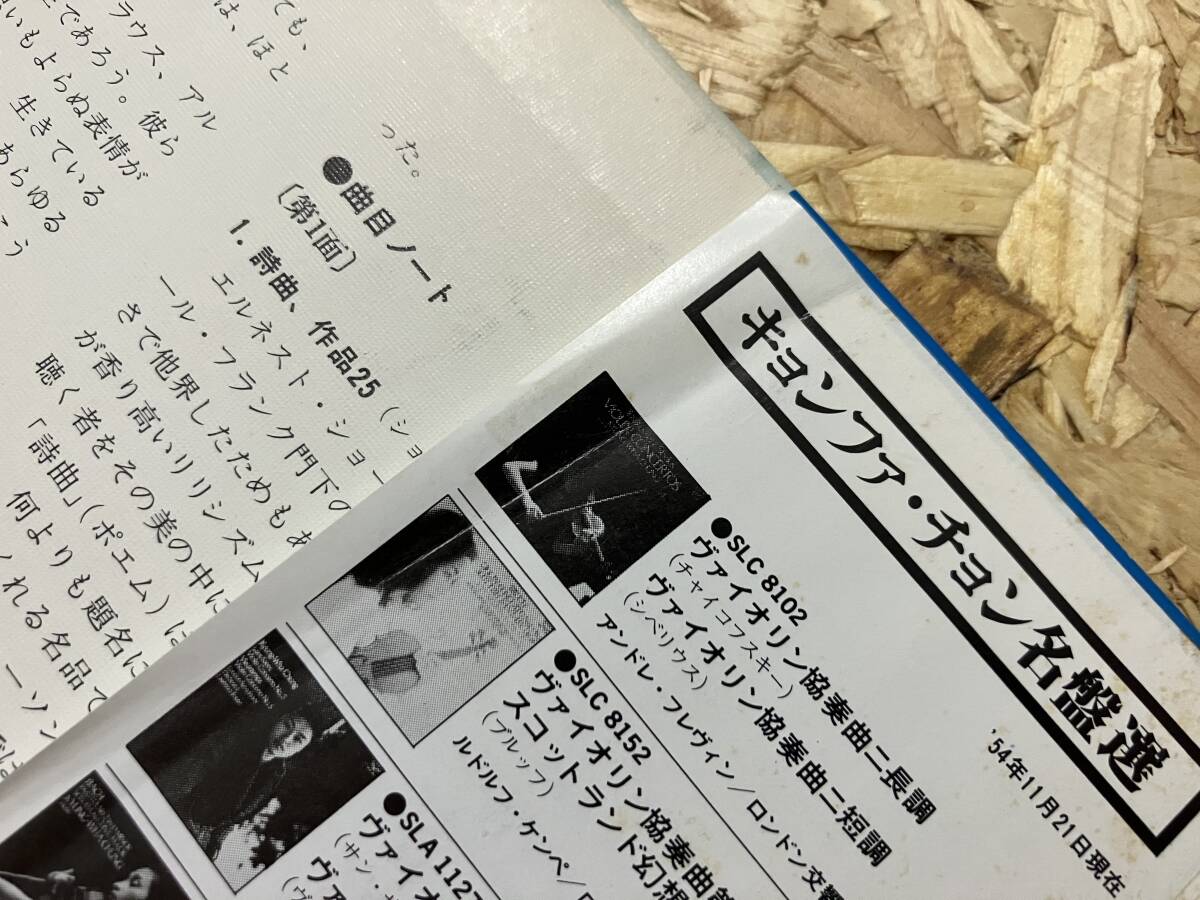 ても、
は、ほと
ラウス、アル
であろう。彼ら
いもよらぬ表情が
生きている
あらゆる
った。
●曲目ノート
〔第1面〕
1. 詩曲、作品25（ショ
エルネスト・ショー
ール・フランク門下の
さで他界したためもあ
が香り高いリリシズム
聴く者をその美の中に
「詩曲」（ポエム）は
何よりも題名に
れる名品で
ーソン
キョンファ・チョン名盤選
'54年11月21日現在
●SLC 8102
ヴァイオリン協奏曲ニ長調
（チャイコフスキー）
ヴァイオリン協奏曲ニ短調
（シベリウス）
アンドレ・プレヴィン/ロンドン交響
●SLC 8152
ヴァイオリン協奏曲第
スコットランド幻想
（ブルッフ）
ルドルフ・ケンペ/ロ
●SLA 1127
ヴァイオ
（サン・サ
ヴァ
（ヴ
VIOLIN CONCERTOS